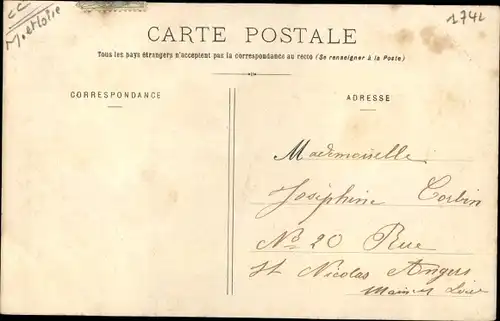 M et Loire
1742
CARTE POSTALE
Tous les pays étrangers n'acceptent pas la correspondance au recto (Se renseigner à la Poste)
CORRESPONDANCE
ADRESSE
Mademoiselle
Joséphine Corbin
No 20 Rue
St Nicolas Angers
Maine et Loire